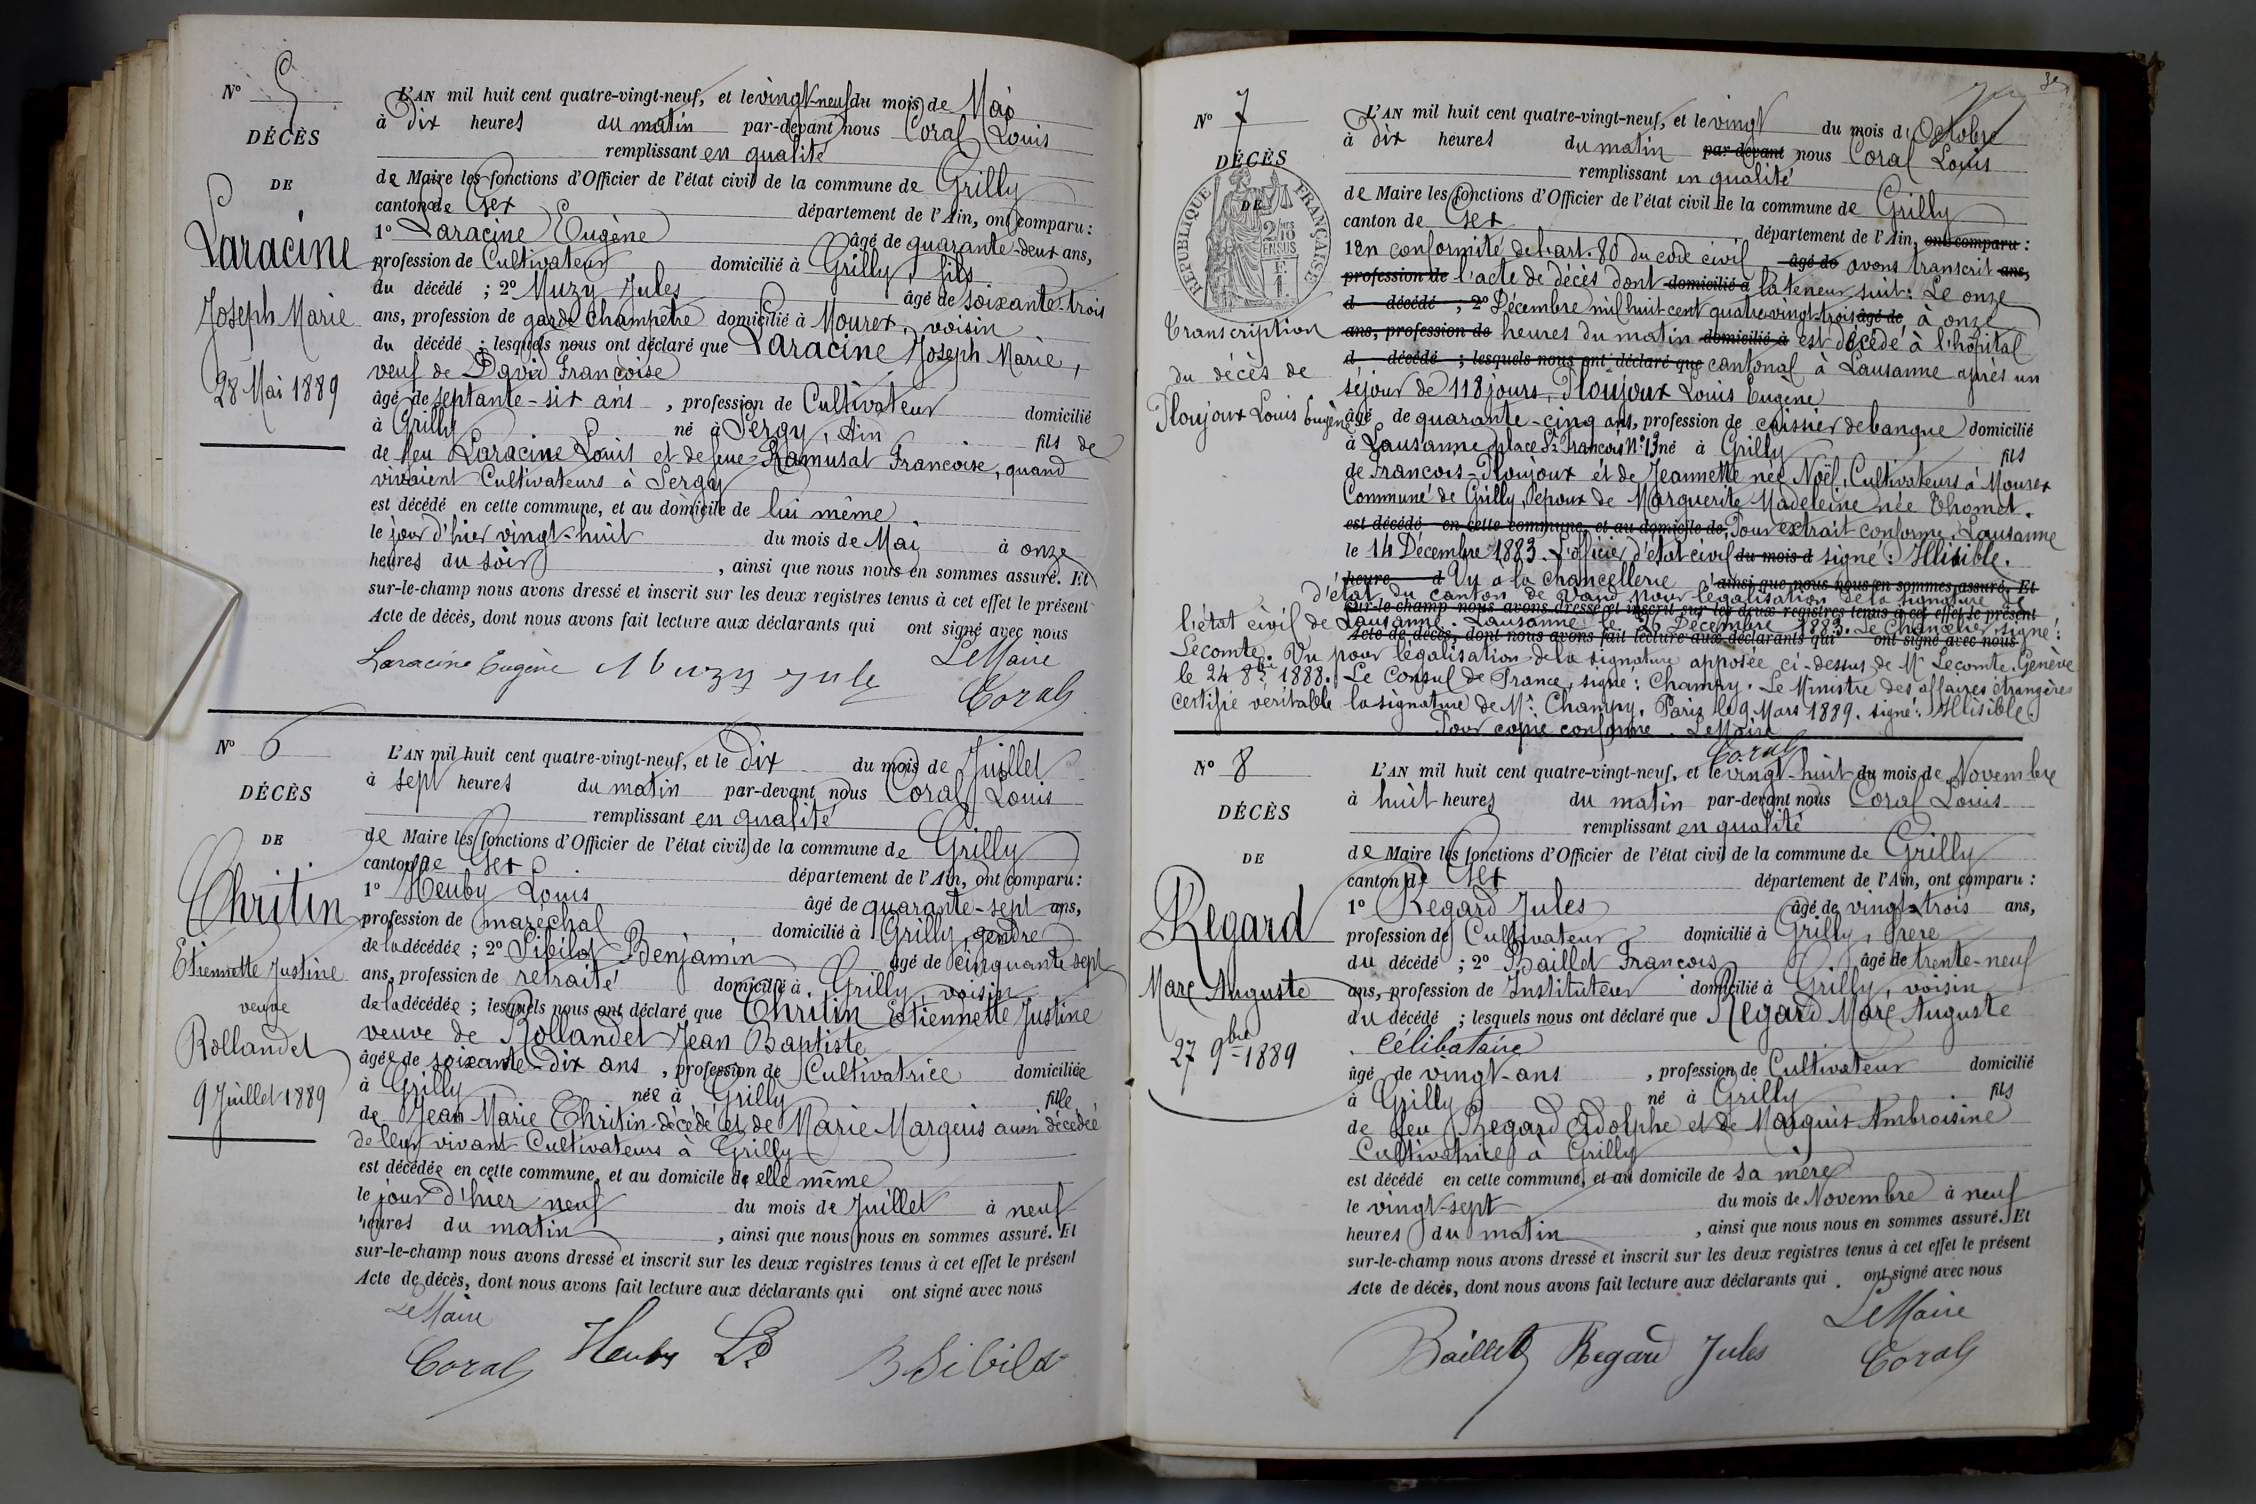 N° 5
DÉCÈS
DE
Laracine
Joseph Marie
28 Mai 1889
L'AN mil huit cent quatre-vingt-neuf, et le vingt-neuf du mois de Mai
à Dix heures du matin par-devant nous Coral Louis
remplissant en qualité
de Maire les fonctions d'Officier de l'état civil de la commune de Grilly
canton de Gex département de l'Ain, ont comparu :
1° Laracine Eugène âgé de quarante-deux ans,
profession de Cultivateur domicilié à Grilly, fils
du décédé ; 2° Muzy Jules âgé de soixante-trois
ans, profession de garde champêtre domicilié à Mourex, voisin
du décédé ; lesquels nous ont déclaré que Laracine Joseph Marie,
veuf de David Françoise
âgé de septante-six ans, profession de Cultivateur domicilié
à Grilly né à Sergy, Ain fils de
de feu Laracine Louis et de feue Ramusat Francoise, quand
vivaient Cultivateurs à Sergy
est décédé en cette commune, et au domicile de lui même
le jour d'hier vingt-huit du mois de Mai à onze
heures du soir, ainsi que nous nous en sommes assuré. Et
sur-le-champ nous avons dressé et inscrit sur les deux registres tenus à cet effet le présent
Acte de décès, dont nous avons fait lecture aux déclarants qui ont signé avec nous
Le Maire
Laracine Eugène Muzy Jule Coral
N° 6
DÉCÈS
DE
Chritin
Etiennette Justine
veuve
Rollandet
9 Juillet 1889
L'AN mil huit cent quatre-vingt-neuf, et le Dix du mois de Juillet
à sept heures du matin par-devant nous Coral Louis
remplissant en qualité
de Maire les fonctions d'Officier de l'état civil de la commune de Grilly
canton de Gex département de l'Ain, ont comparu :
1° Heuby Louis âgé de quarante-sept ans,
profession de maréchal domicilié à Grilly, gendre
de la décédée ; 2° Sibilat Benjamin âgé de cinquante sept
ans, profession de retraité domicilié à Grilly, voisin
de la décédée ; lesquels nous ont déclaré que Chritin Etiennette Justine
veuve de Rollandet Jean Baptiste
âgée de soixante-dix ans, profession de Cultivatrice domiciliée
à Grilly née à Grilly fille
de Jean Marie Chritin décédé et de Marie Margeus aussi décédée
de leur vivant Cultivateurs à Grilly
est décédée en cette commune, et au domicile de elle même
le jour d'hier neuf du mois de Juillet à neuf
heures du matin, ainsi que nous nous en sommes assuré. Et
sur-le-champ nous avons dressé et inscrit sur les deux registres tenus à cet effet le présent
Acte de décès, dont nous avons fait lecture aux déclarants qui ont signé avec nous
Le Maire
Coral Heuby Ls B Sibilat
N° 7
DÉCÈS
DE
RÉPUBLIQUE FRANÇAISE
2/10 EN SUS
Transcription
du décès de
Ploujoux Louis Eugène
L'AN mil huit cent quatre-vingt-neuf, et le vingt du mois d'Octobre
à dix heures du matin par-devant nous Coral Louis
remplissant en qualité
de Maire les fonctions d'Officier de l'état civil de la commune de Grilly
canton de Gex département de l'Ain, ont comparu :
1° En conformité de l'art. 80 du code civil âgé de avons transcrit ans,
profession de l'acte de décès dont domicilié à la teneur suit : Le onze
d décédé ; 2° Décembre mil huit-cent quatre-vingt-trois âgé de à onze
ans, profession de heures du matin domicilié à est décédé à l'hôpital
d décédé ; lesquels nous ont déclaré que cantonal à Lausanne après un
séjour de 118 jours, Ploujoux Louis Eugène
âgé de quarante-cinq ans, profession de caissier de banque domicilié
à Lausanne place St Francois N° 13 né à Grilly fils
de Francois Ploujoux et de Jeannette née Noël, Cultivateurs à Mourex
Commune de Grilly, Epoux de Marguerite Madeleine née Thomet.
est décédé en cette commune, et au domicile de Pour extrait conforme. Lausanne
le 14 Décembre 1883. L'officier d'état civil du mois d signé : Illisible.
heure d Vu à la Chancellerie ainsi que nous nous en sommes assuré. Et
d'état du canton de Vaud pour légalisation de la signature de
sur-le-champ nous avons dressé et inscrit sur les deux registres tenus à cet effet le présent
l'état civil de Lausanne. Lausanne le 26 Décembre 1883. Le Chancelier signé :
Acte de décès, dont nous avons fait lecture aux déclarants qui ont signé avec nous
Lecomte. Vu pour légalisation de la signature apposée ci-dessus de Mr Lecomte. Genève
le 24 8bre 1888. Le Consul de France, signé : Champy. Le Ministre des affaires étrangères
certifie véritable la signature de Mr Champy. Paris le 9 Mars 1889. signé : Illisible.
Pour copie conforme. Le Maire
Coral
N° 8
DÉCÈS
DE
Regard
Marc Auguste
27 9bre 1889
L'AN mil huit cent quatre-vingt-neuf, et le vingt-huit du mois de Novembre
à huit heures du matin par-devant nous Coral Louis
remplissant en qualité
de Maire les fonctions d'Officier de l'état civil de la commune de Grilly
canton de Gex département de l'Ain, ont comparu :
1° Regard Jules âgé de vingt-trois ans,
profession de Cultivateur domicilié à Grilly, frère
du décédé ; 2° Baillet Francois âgé de trente-neuf
ans, profession de Instituteur domicilié à Grilly, voisin
du décédé ; lesquels nous ont déclaré que Regard Marc Auguste
Célibataire
âgé de vingt-ans, profession de Cultivateur domicilié
à Grilly né à Grilly fils
de feu Regard Adolphe et de Marquis Ambroisine
Cultivatrice à Grilly
est décédé en cette commune, et au domicile de sa mère
le vingt-sept du mois de Novembre à neuf
heures du matin, ainsi que nous nous en sommes assuré. Et
sur-le-champ nous avons dressé et inscrit sur les deux registres tenus à cet effet le présent
Acte de décès, dont nous avons fait lecture aux déclarants qui ont signé avec nous
Le Maire
Baillet Regard Jules Coral